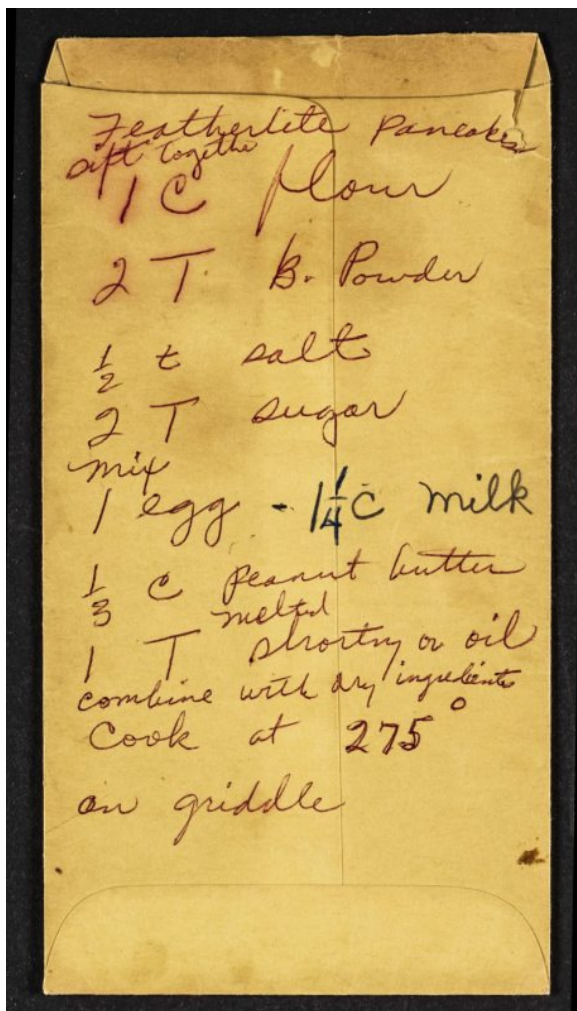 Featherlite Pancakes
sift together
1 C flour
2 T. B. Powder
1/2 t salt
2 T sugar
mix
1 egg - 1 1/4 C milk
1/3 C Peanut butter
melted
1 T shortng or oil
combine with dry ingredients
Cook at 275°
on griddle